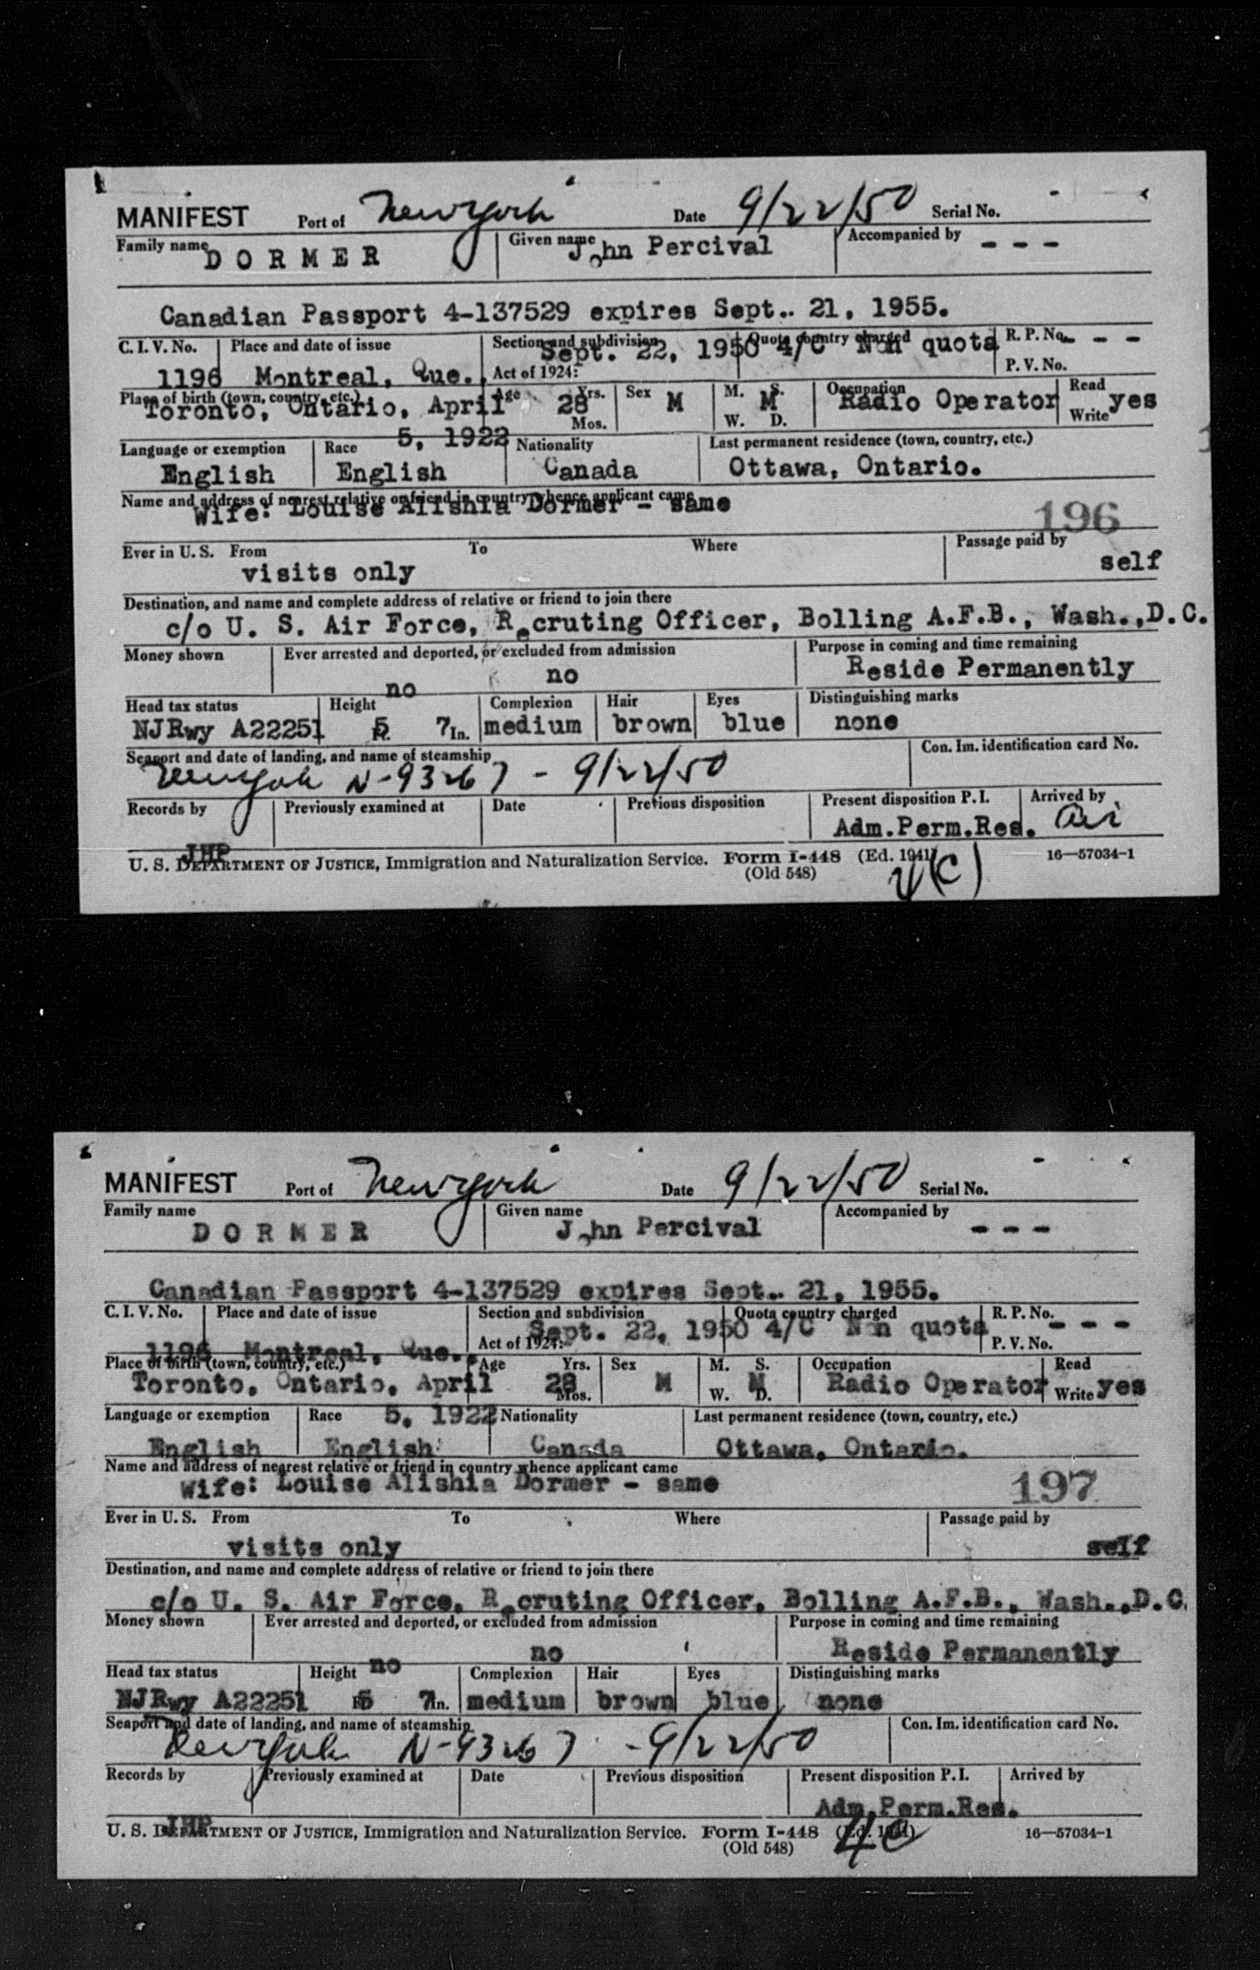 MANIFEST Port of New York Date 9/22/50 Serial No.
Family name DORMER Given name John Percival Accompanied by - - -
Canadian Passport 4-137529 expires Sept.. 21, 1955.
C. I. V. No. Place and date of issue Section and subdivision Quota country charged R. P. No. - - -
Sept. 22, 1950 4/C Non quota
1196 Montreal, Que., Act of 1924: P. V. No.
Place of birth (town, country, etc.) Age Yrs. Sex M. S. Occupation Read
Toronto, Ontario, April 28 M M Radio Operator yes
Mos. W. D. Write
5, 1922
Language or exemption Race Nationality Last permanent residence (town, country, etc.)
English English Canada Ottawa, Ontario.
Name and address of nearest relative or friend in country whence applicant came
Wife: Louise Alishia Dormer - same
196
Ever in U. S. From To Where Passage paid by
visits only self
Destination, and name and complete address of relative or friend to join there
c/o U. S. Air Force, Recruting Officer, Bolling A.F.B., Wash.,D.C.
Money shown Ever arrested and deported, or excluded from admission Purpose in coming and time remaining
no Reside Permanently
no
Head tax status Height Complexion Hair Eyes Distinguishing marks
NJRwy A22251 5 Ft. 7 In. medium brown blue none
Seaport and date of landing, and name of steamship Con. Im. identification card No.
New York N-93267 - 9/22/50
Records by Previously examined at Date Previous disposition Present disposition P. I. Arrived by
Adm.Perm.Res.
JHP
U. S. DEPARTMENT OF JUSTICE, Immigration and Naturalization Service. Form I-448 (Ed. 1941) 16—57034-1
(Old 548) 4(C)
MANIFEST Port of New York Date 9/22/50 Serial No.
Family name Given name Accompanied by
DORMER John Percival - - -
Canadian Passport 4-137529 expires Sept.. 21, 1955.
C. I. V. No. Place and date of issue Section and subdivision Quota country charged R. P. No. - - -
Sept. 22, 1950 4/C Non quota
1196 Montreal, Que., Act of 1924: P. V. No.
Place of birth (town, country, etc.) Age Yrs. Sex M. S. Occupation Read
Toronto, Ontario, April 28 M M Radio Operator yes
Mos. W. D. Write
5, 1922
Language or exemption Race Nationality Last permanent residence (town, country, etc.)
English English Canada Ottawa, Ontario.
Name and address of nearest relative or friend in country whence applicant came
Wife: Louise Alishia Dormer - same
197
Ever in U. S. From To Where Passage paid by
visits only self
Destination, and name and complete address of relative or friend to join there
c/o U. S. Air Force, Recruting Officer, Bolling A.F.B., Wash.,D.C.
Money shown Ever arrested and deported, or excluded from admission Purpose in coming and time remaining
no Reside Permanently
no
Head tax status Height Complexion Hair Eyes Distinguishing marks
NJRwy A22251 5 Ft. 7 In. medium brown blue none
Seaport and date of landing, and name of steamship Con. Im. identification card No.
New York N-93267 - 9/22/50
Records by Previously examined at Date Previous disposition Present disposition P. I. Arrived by
Adm.Perm.Res.
JHP
U. S. DEPARTMENT OF JUSTICE, Immigration and Naturalization Service. Form I-448 (Ed. 1941) 16—57034-1
(Old 548) 4C